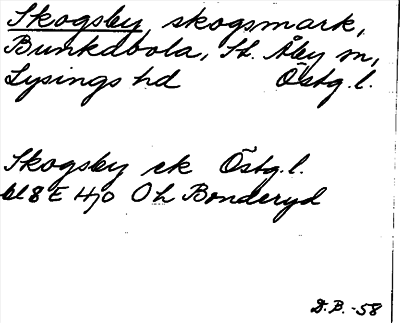 Skogsby, skogsmark,
Bunkabola, St. Åby sn,
Lysings hd Östg. l.
Skogsby ek Östg. l.
bl 8 E 4j0 Oh Bonderyd
D.B. -58